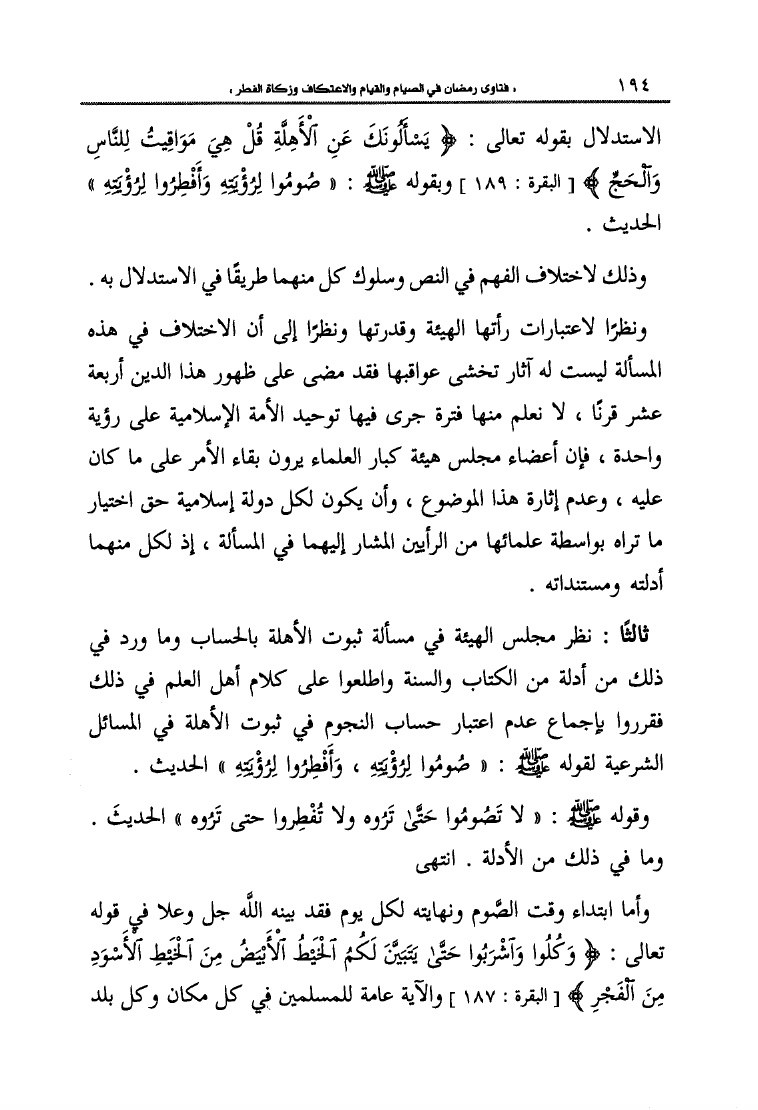 ١٩٤ « فتاوى رمضان في الصيام والقيام والاعتكاف وزكاة الفطر »
الاستدلال بقوله تعالى : ﴿ يَسْأَلُونَكَ عَنِ ٱلْأَهِلَّةِ قُلْ هِيَ مَوَاقِيتُ لِلنَّاسِ
وَٱلْحَجِّ ﴾ [ البقرة : ١٨٩ ] وبقوله ﷺ : « صُومُوا لِرُؤْيَتِهِ وَأَفْطِرُوا لِرُؤْيَتِهِ »
الحديث .
وذلك لاختلاف الفهم في النص وسلوك كل منهما طريقًا في الاستدلال به .
ونظرًا لاعتبارات رأتها الهيئة وقدرتها ونظرًا إلى أن الاختلاف في هذه
المسألة ليست له آثار تخشى عواقبها فقد مضى على ظهور هذا الدين أربعة
عشر قرنًا ، لا نعلم منها فترة جرى فيها توحيد الأمة الإسلامية على رؤية
واحدة ، فإن أعضاء مجلس هيئة كبار العلماء يرون بقاء الأمر على ما كان
عليه ، وعدم إثارة هذا الموضوع ، وأن يكون لكل دولة إسلامية حق اختيار
ما تراه بواسطة علمائها من الرأيين المشار إليهما في المسألة ، إذ لكل منهما
أدلته ومستنداته .
ثالثًا : نظر مجلس الهيئة في مسألة ثبوت الأهلة بالحساب وما ورد في
ذلك من أدلة من الكتاب والسنة واطلعوا على كلام أهل العلم في ذلك
فقرروا بإجماع عدم اعتبار حساب النجوم في ثبوت الأهلة في المسائل
الشرعية لقوله ﷺ : « صُومُوا لِرُؤْيَتِهِ ، وَأَفْطِرُوا لِرُؤْيَتِهِ » الحديث .
وقوله ﷺ : « لا تَصُومُوا حَتَّىٰ تَرُوه ولا تُفْطِروا حتى تَرُوه » الحديثَ .
وما في ذلك من الأدلة . انتهى
وأما ابتداء وقت الصَّوم ونهايته لكل يوم فقد بينه اللَّه جل وعلا في قوله
تعالى : ﴿ وَكُلُوا وَٱشْرَبُوا حَتَّىٰ يَتَبَيَّنَ لَكُمُ ٱلْخَيْطُ ٱلْأَبْيَضُ مِنَ ٱلْخَيْطِ ٱلْأَسْوَدِ
مِنَ ٱلْفَجْرِ ﴾ [ البقرة : ١٨٧ ] والآية عامة للمسلمين في كل مكان وكل بلد